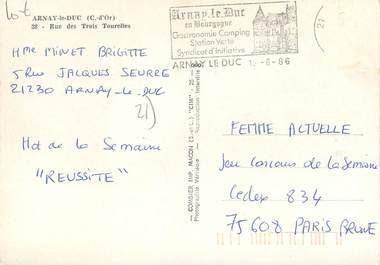 Lot
ARNAY-le-DUC (C.-d'Or)
28 - Rue des Trois Tourelles
Mme MINET BRIGITTE
5 Rue JACQUES SEURRE
21230 ARNAY-le-DUC
21)
Mot de la Semaine
"REUSSITE"
COMBIER IMP. MACON (S.-et-L.) "CIM"
Photographie Véritable - Reproduction Interdite
Arnay-le-Duc
en Bourgogne
Gastronomie Camping
Station Verte
Syndicat d'Initiative
ARNAY LE DUC -6-86
21
FEMME ACTUELLE
Jeu concours de la Semaine
Cedex 834
75608 PARIS BRUNE